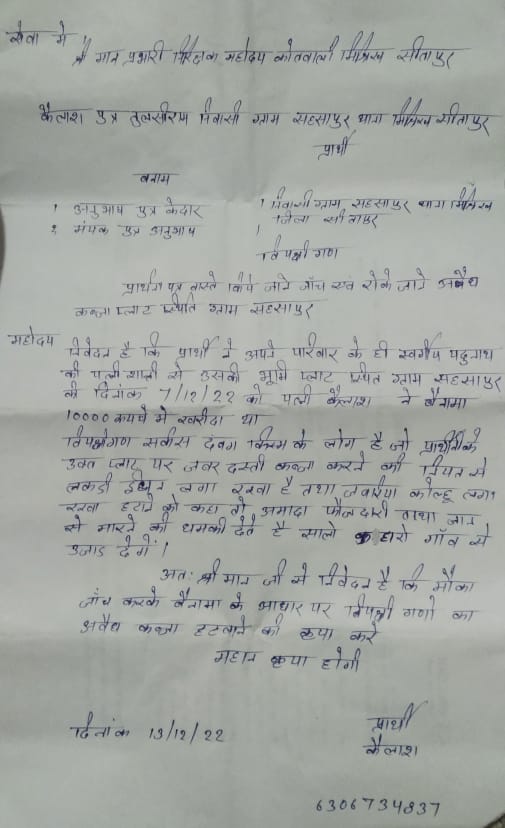 सेवा में
श्री मान प्रभारी निरीक्षक महोदय कोतवाली मिश्रिख सीतापुर
कैलाश पुत्र तुलसीराम निवासी ग्राम सहसापुर थाना मिश्रिख सीतापुर
प्रार्थी
बनाम
1 अनुभाष पुत्र केदार
2 मंपक पुत्र अनुभाष
। निवासी ग्राम सहसापुर थाना मिश्रिख
। जिला सीतापुर
विपक्षी गण
प्रार्थना पत्र वास्ते किये जाने जाँच एवं रोके जाने अवैध
कब्जा प्लाट स्थित ग्राम सहसापुर
महोदय
निवेदन है कि प्रार्थी ने अपने परिवार के ही स्वर्गीय पदुनाथ
की पत्नी से उसकी भूमि प्लाट स्थित ग्राम सहसापुर
की दिनांक 7/12/22 को पत्नी कैलाश ने बैनामा
10000 रूपये में खरीदा था
विपक्षीगण दबंग किस्म के लोग है जो प्रार्थीनी के
उक्त प्लाट पर जबर दस्ती कब्जा करने की नियत से
लकडी ईंधन लगा रखवा है तथा कोल्हू लगा
रखवा हटाने को कहा तो अमादा फौजदारी तथा जान
से मारने की धमकी देते है सालो गाँव से
उजाड देगें।
अतः श्री मान जी से निवेदन है कि मौका
जाँच करके बैनामा के आधार पर विपक्षी गणो का
अवैध कब्जा हटवाने की कृपा करे
महान कृपा होगी
दिनांक 13/12/22
प्रार्थी
कैलाश
6306734837